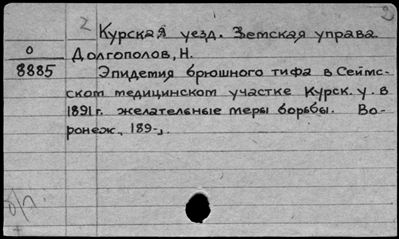 2
Курская уезд. Земская управа.
О
8885
Долгополов, Н.
Эпидемия брюшного тифа в Сеймс-
ском медицинском участке Курск. у. в
1891 г. желательные меры борьбы. Во-
ронеж, 189-,.
б/п.